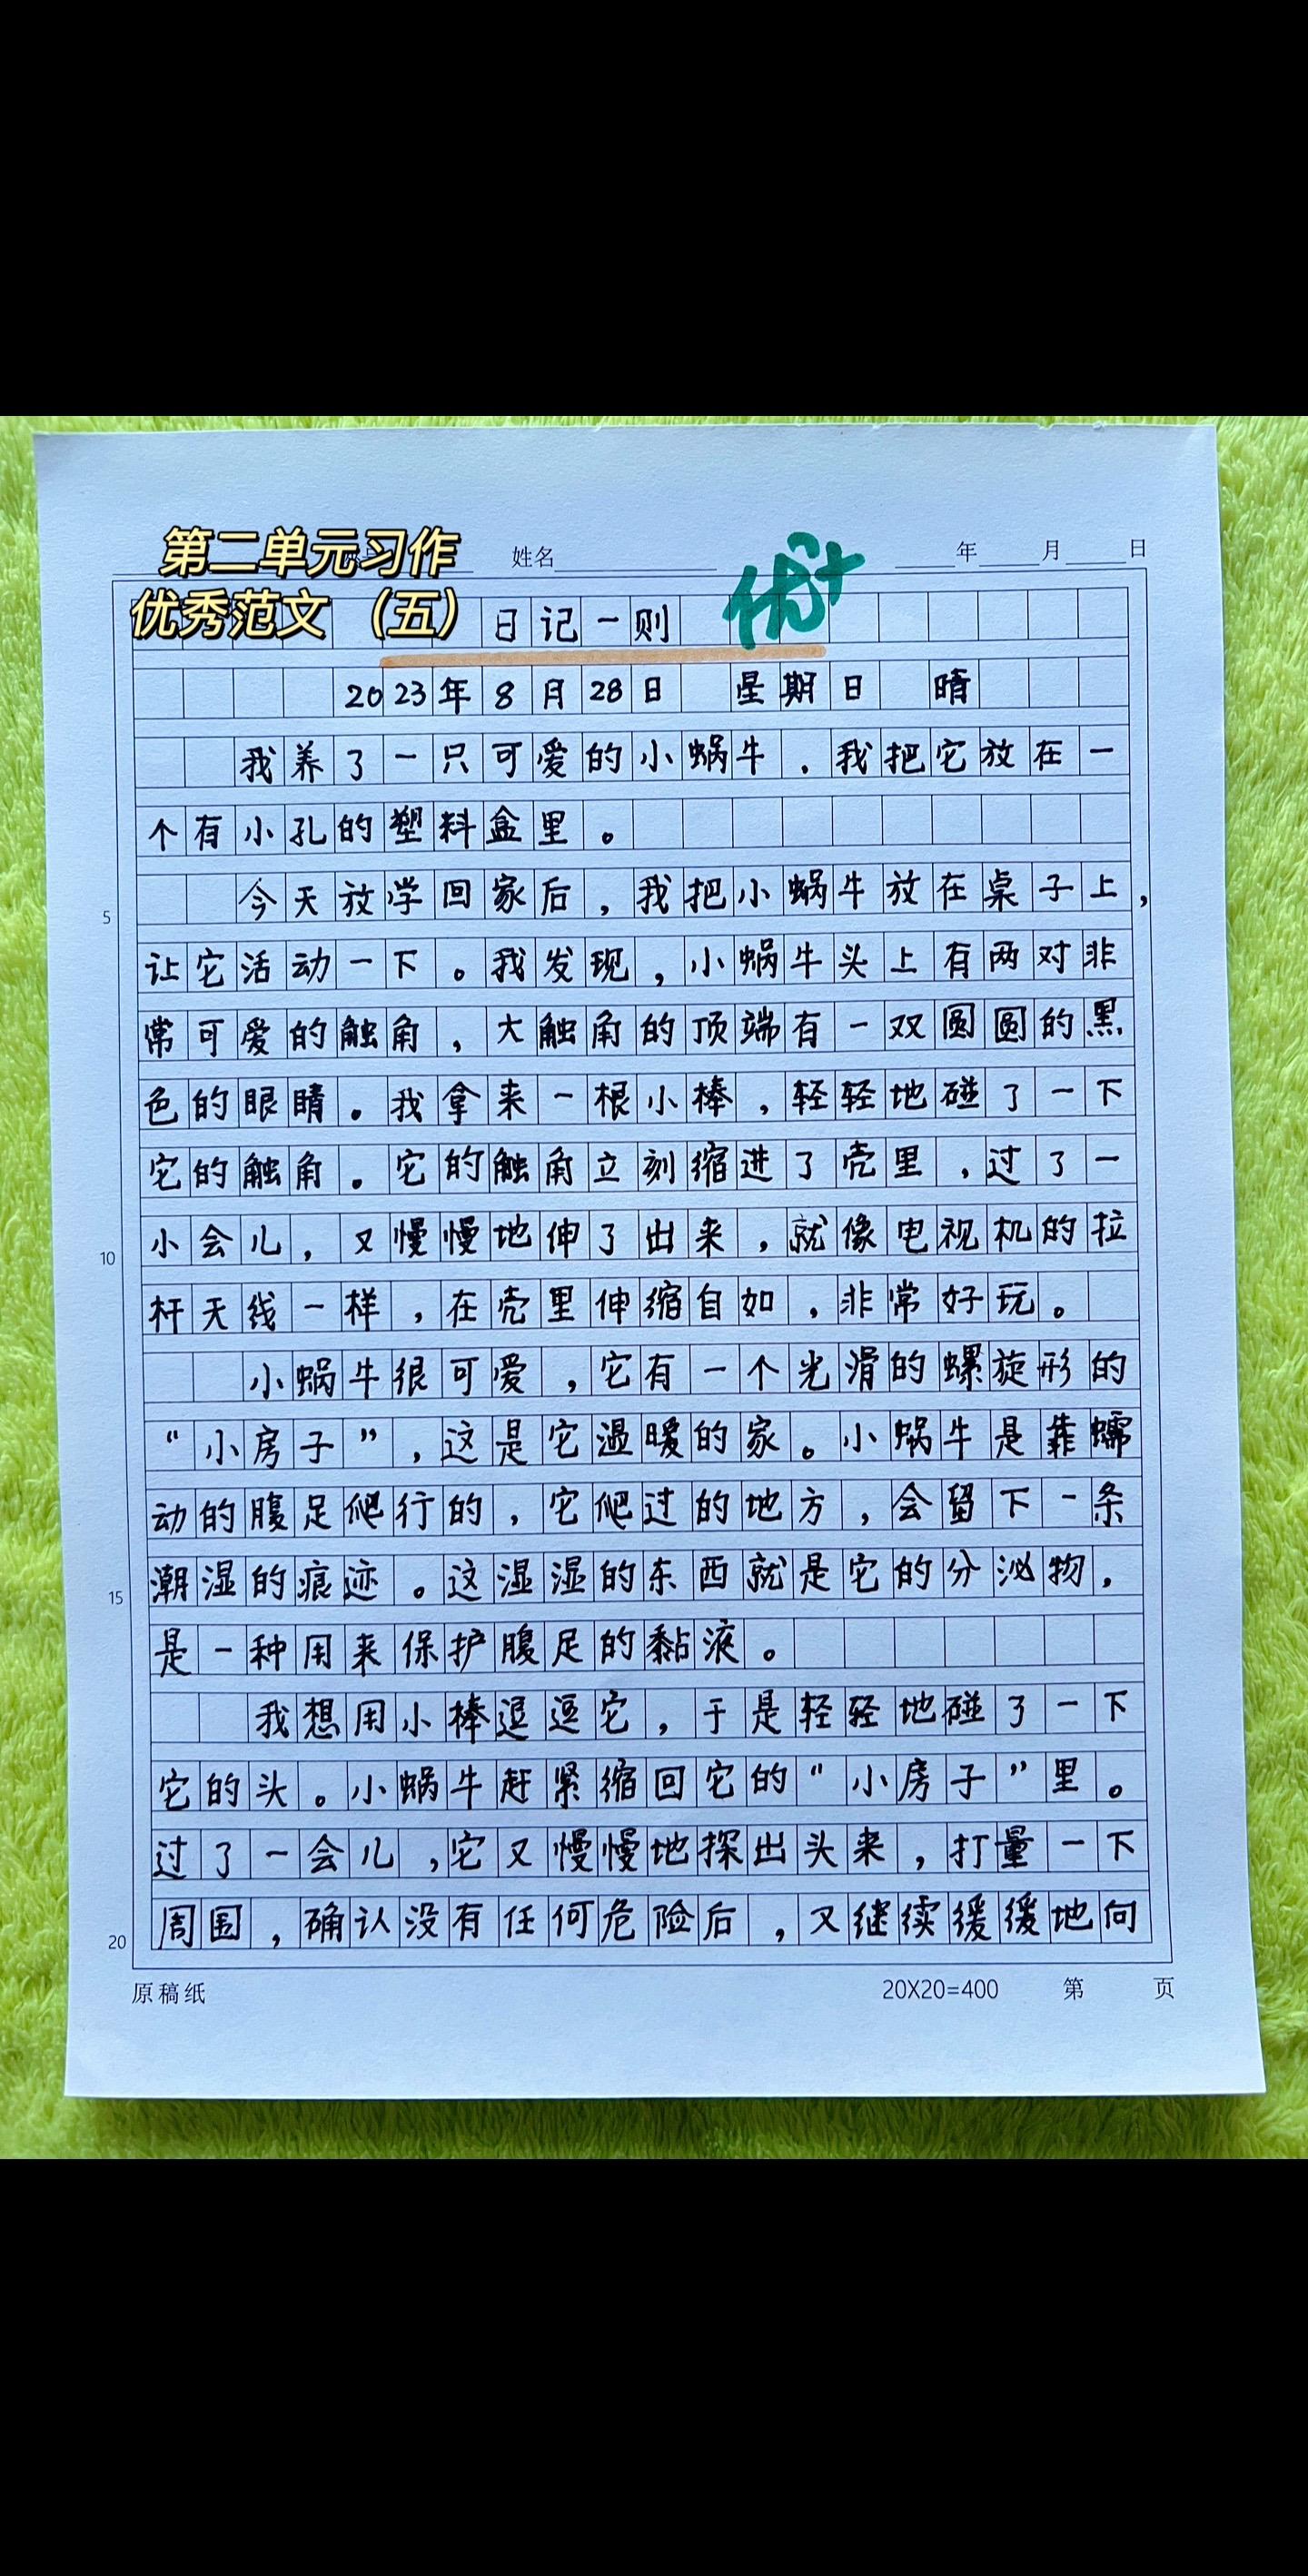 第二单元习作
优秀范文（五）
姓名 年 月 日
优+
日记一则
2023年8月28日 星期日 晴
我养了一只可爱的小蜗牛，我把它放在一
个有小孔的塑料盒里。
今天放学回家后，我把小蜗牛放在桌子上，
5
让它活动一下。我发现，小蜗牛头上有两对非
常可爱的触角，大触角的顶端有一双圆圆的黑
色的眼睛。我拿来一根小棒，轻轻地碰了一下
它的触角。它的触角立刻缩进了壳里，过了一
小会儿，又慢慢地伸了出来，就像电视机的拉
10
杆天线一样，在壳里伸缩自如，非常好玩。
小蜗牛很可爱，它有一个光滑的螺旋形的
“小房子”，这是它温暖的家。小蜗牛是靠蠕
动的腹足爬行的，它爬过的地方，会留下一条
潮湿的痕迹。这湿湿的东西就是它的分泌物，
15
是一种用来保护腹足的黏液。
我想用小棒逗逗它，于是轻轻地碰了一下
它的头。小蜗牛赶紧缩回它的“小房子”里。
过了一会儿，它又慢慢地探出头来，打量一下
周围，确认没有任何危险后，又继续缓缓地向
20
原稿纸 20X20=400 第 页